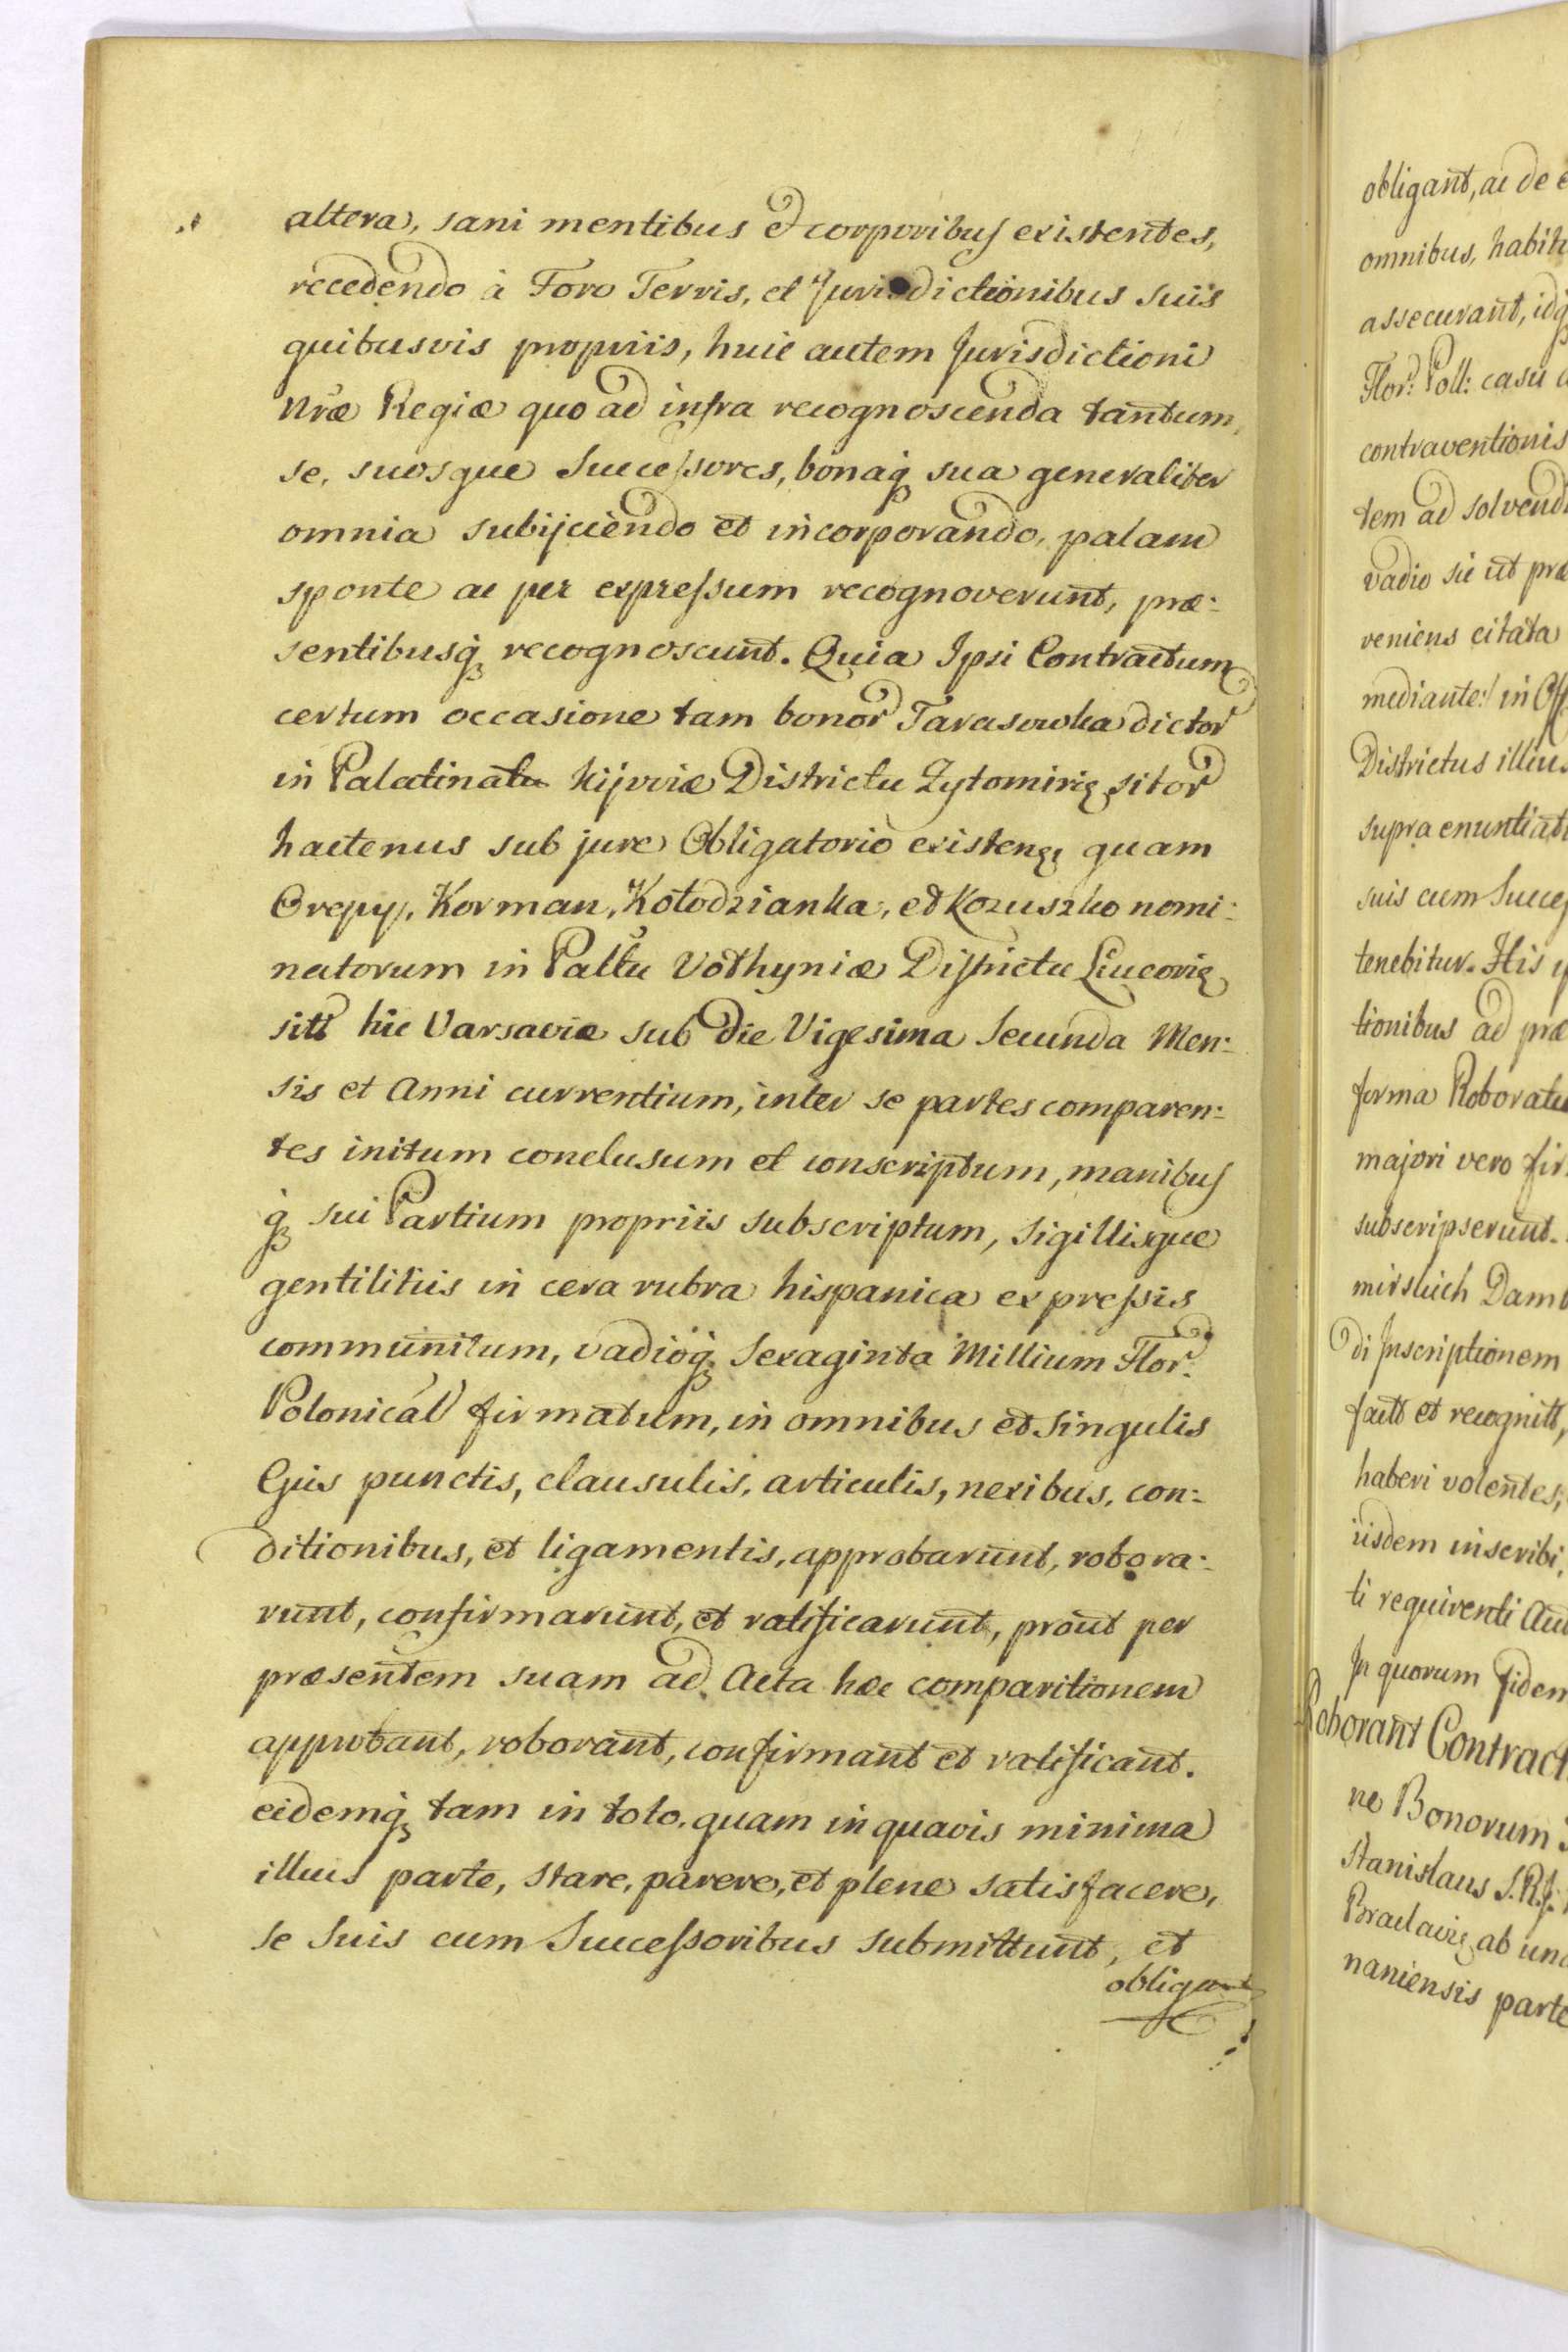 altera, sani mentibus et corporibus existentes,
recedendo à Foro Terris, et Jurisdictionibus suis
quibusvis propriis, huic autem Jurisdictioni
nræ Regiæ quo ad infra recognoscenda tantum,
se, suosque Successores, bonaq sua generaliter
omnia subijciendo et incorporando, palam
sponte ac per expressum recognoverunt, præ:
sentibusq recognoscunt. Quia Ipsi Contractum
certum occasione tam bonor Tarasowka dictor
in Palatinatu Kijoviæ Districtu Zytomirię sitor
hactenus sub jure Obligatorio existenę quam
Orepy, Korman, Kołodzianka, et Kozuszko nomi:
natorum in Pallŭ Volhyniæ Districtu Luceorię
sitt hic Varsaviæ sub die Vigesima Secunda Men:
sis et Anni currentium, inter se partes comparen:
tes initum conclusum et conscriptum, manibus
q sui Partium propriis subscriptum, Sigillisque
gentilitiis in cera rubra hispanica expressis
communitum, vadioq Sexaginta Millium Flor:
Polonical firmatum, in omnibus et Singulis
Ejus punctis, clausulis, articulis, nexibus, con:
ditionibus, et ligamentis, approbarunt, robora:
runt, confirmarunt, et ratificarunt, prout per
præsentem suam ad Acta hæc comparitionem
approbant, roborant, confirmant et ratificant.
eidemq tam in toto, quam in quavis minima
illius parte, stare, parere, et plene satisfacere,
se Suis cum Successoribus submittunt, et
obligant
obligant, ac de
omnibus, habit
assecurant, idq
Flor: Poll: casu
contraventionis
tem ad solvend
vadio sic ut præ
veniens citata
mediante/ in Off
Districtus illius
supra enuntiat
suis cum Succes
tenebitur. His
tionibus ad præ
forma Roboratu
majori vero fir
subscripserunt.
mirskich Damb
di Inscriptionem
factt et recognitt,
haberi volentes,
iisdem inscribi,
ti requirenti Au
In quorum fidem
Roborant Contract
ne Bonorum
Stanislaus S.R.J.
Braclavię ab una
naniensis parte